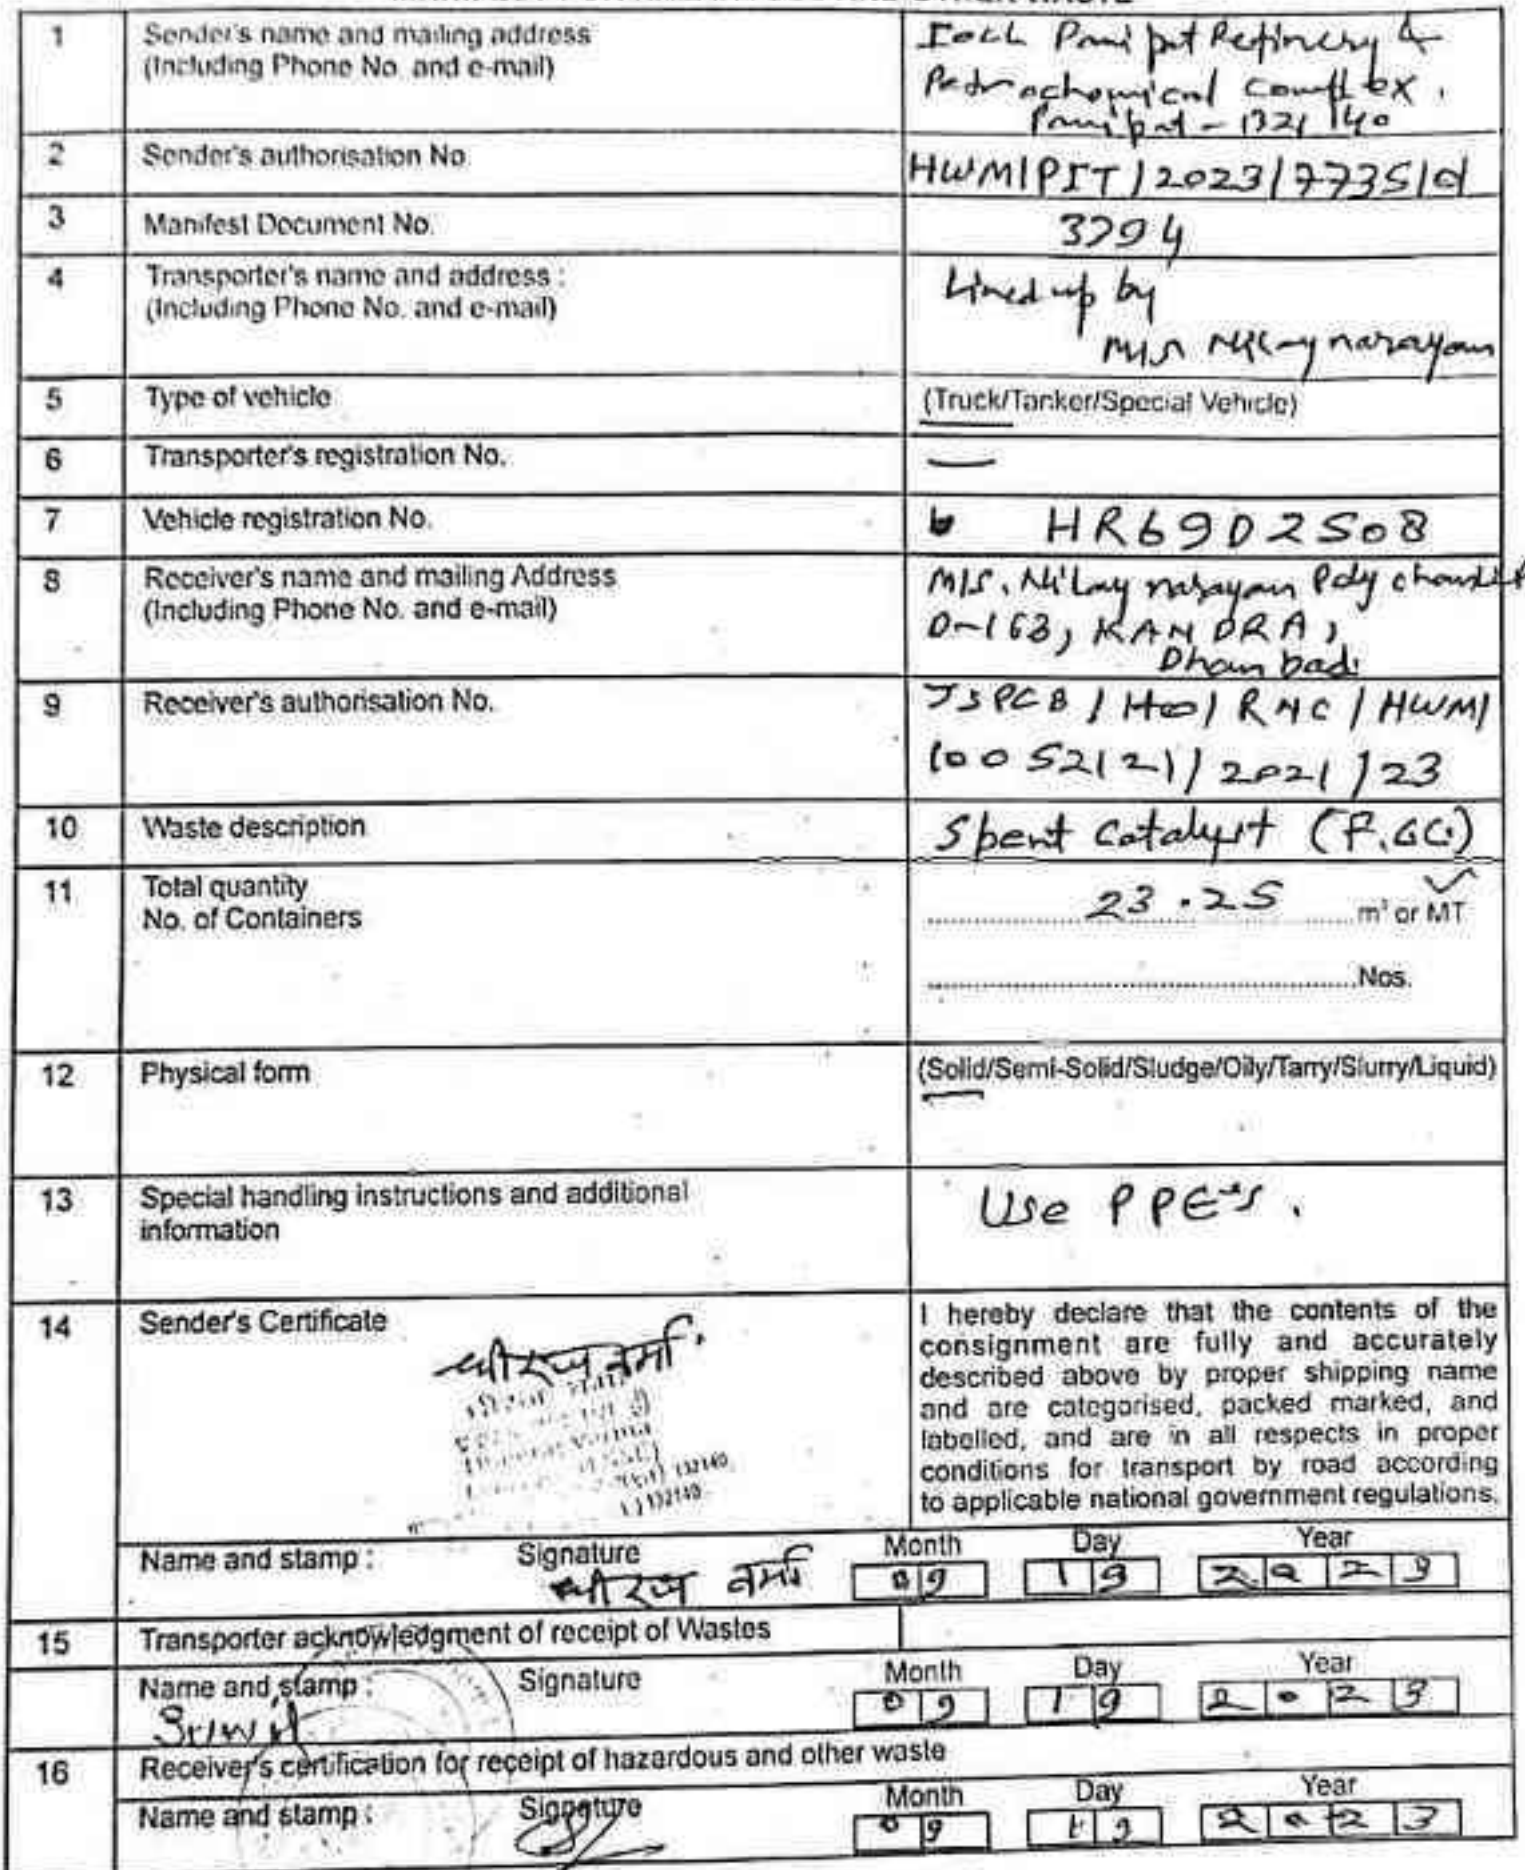 1 Sender's name and mailing address
(Including Phone No. and e-mail)
IOCL Panipat Refinery &
Petrochemical complex.
Panipat - 132140
2 Sender's authorisation No.
HWM/PIT/2023/7735101
3 Manifest Document No.
3794
4 Transporter's name and address :
(Including Phone No. and e-mail)
Lined up by
M/s Nilay narayan
5 Type of vehicle
(Truck/Tanker/Special Vehicle)
6 Transporter's registration No.
—
7 Vehicle registration No.
HR69D2508
8 Receiver's name and mailing Address
(Including Phone No. and e-mail)
M/S. Nilay narayan Poly
D-163, KANDRA,
Dhanbad.
9 Receiver's authorisation No.
JSPCB / HO/ RNC / HWM/
10052121/2021/23
10 Waste description
Spent Catalyst
11 Total quantity
No. of Containers
23.25 m³ or MT ✓
Nos.
12 Physical form
(Solid/Semi-Solid/Sludge/Oily/Tarry/Slurry/Liquid)
13 Special handling instructions and additional
information
Use PPE's.
14 Sender's Certificate
धीरज वर्मा.
132140
132140
I hereby declare that the contents of the
consignment are fully and accurately
described above by proper shipping name
and are categorised, packed marked, and
labelled, and are in all respects in proper
conditions for transport by road according
to applicable national government regulations.
Name and stamp : Signature Month Day Year
धीरज वर्मा 09 19 2023
15 Transporter acknowledgment of receipt of Wastes
Name and stamp : Signature Month Day Year
Sunil 09 19 2023
16 Receiver's certification for receipt of hazardous and other waste
Name and stamp : Signature Month Day Year
09 2023